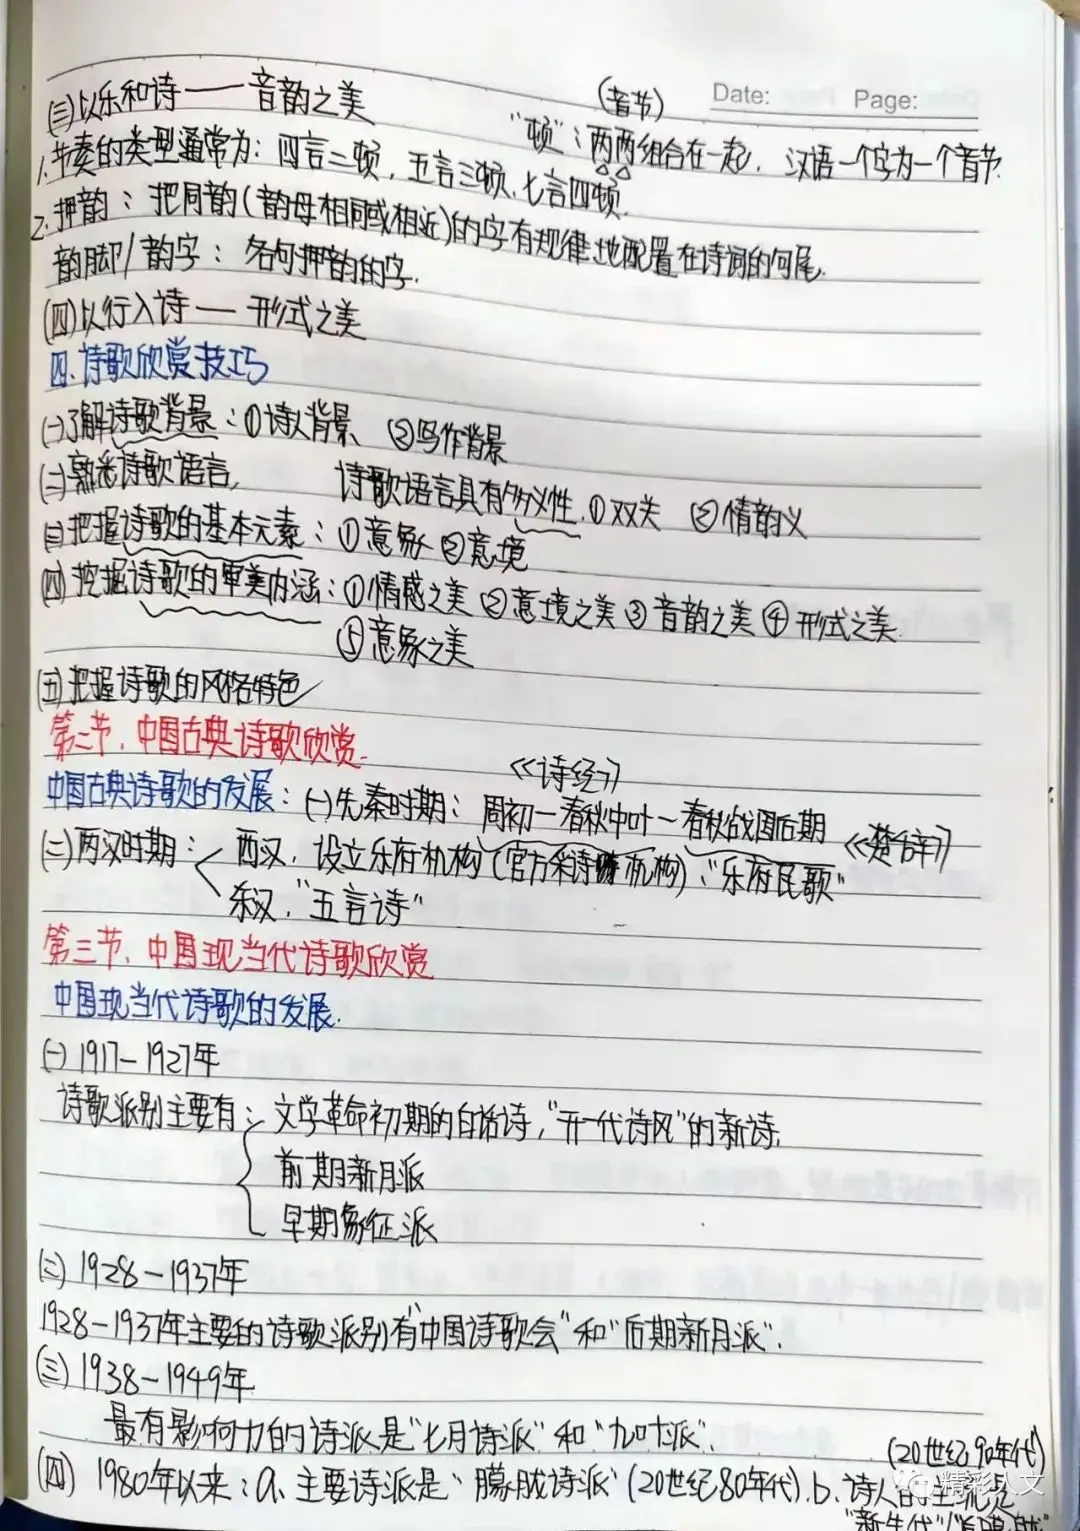 Date: Page:
(三)以乐和诗——音韵之美
(音节)
"顿"：两两组合在一起，汉语一个字为一个音节.
1.节奏的类型通常为：四言二顿，五言三顿、七言四顿.
2.押韵：把同韵(韵母相同或相近)的字有规律地配置在诗词的句尾.
韵脚/韵字：各句押韵的字.
(四)以行入诗——形式之美
四、诗歌欣赏技巧
(一)了解诗歌背景：①诗人背景 ②写作背景
(二)熟悉诗歌语言, 诗歌语言具有多义性.①双关 ②情韵义
(三)把握诗歌的基本元素：①意象 ②意境
(四)挖掘诗歌的审美内涵：①情感之美 ②意境之美 ③音韵之美 ④形式之美.
⑤意象之美
(五)把握诗歌的风格特色
第二节、中国古典诗歌欣赏.
《诗经》
中国古典诗歌的发展：(一)先秦时期：周初—春秋中叶~春秋战国后期《楚辞》
(二)两汉时期：西汉，设立乐府机构(官方采诗机构)，"乐府民歌"
东汉，"五言诗"
第三节、中国现当代诗歌欣赏
中国现当代诗歌的发展.
(一)1917—1927年
诗歌派别主要有：文学革命初期的白话诗，"开一代诗风"的新诗.
前期新月派
早期象征派
(二)1928—1937年
1928—1937年主要的诗歌派别有"中国诗歌会"和"后期新月派".
(三)1938—1949年.
最有影响力的诗派是"七月诗派"和"九叶派".
(20世纪90年代)
(四) 1980年以来：a.主要诗派是"朦胧诗派"(20世纪80年代).b.诗人的主流是
"新生代"/
精彩人文